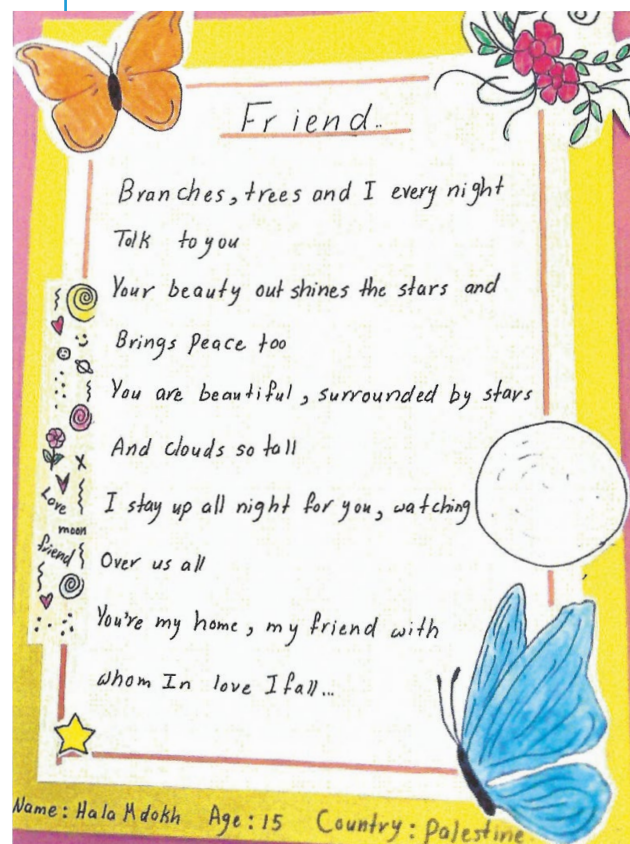 Friend..
Branches, trees and I every night
Talk to you
Your beauty outshines the stars and
Brings Peace too
You are beautiful, surrounded by stars
And clouds so tall
I stay up all night for you, watching
Over us all
You're my home, my friend with
whom In love I fall...
Love
moon
friend
Name: Hala Mdokh Age: 15 Country: Palestine